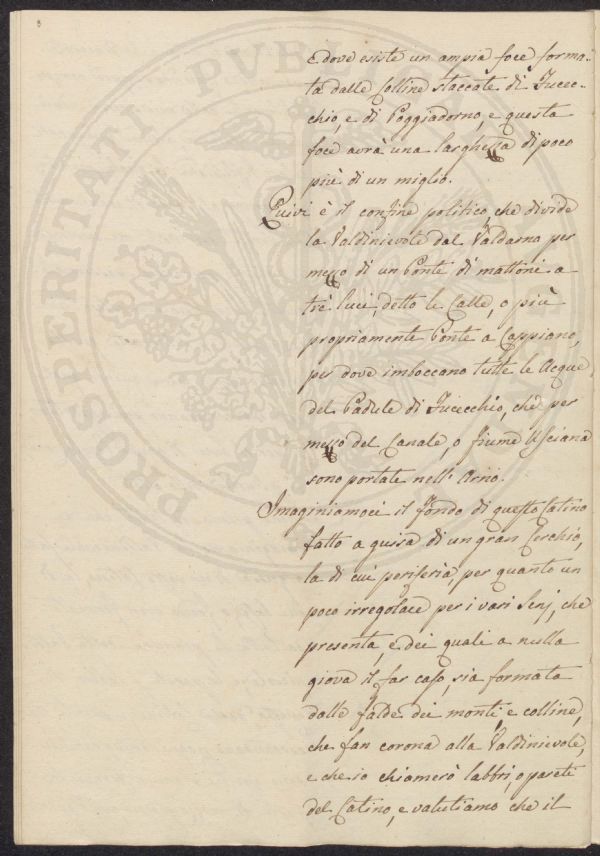 PROSPERITATI PVBLICAE
e dove esiste un ampia foce forma-
ta dalle Colline staccate di Fucec-
chio, e di Poggiadorno, e questa
foce avrà una larghezza di poco
più di un miglio.
Quivi è il confine politico, che divide
la Valdinievole dal Valdarno per
mezzo di un Ponte di mattoni a
trè luci, detto le Calle, o più
propriamente Ponte a Cappiano,
per dove imboccano tutte le Acque
del Padule di Fucecchio, che per
mezzo del Canale, o fiume Usciana
sono portate nell'Arno.
Imaginiamoci il fondo di questo Catino
fatto a guisa di un gran Cerchio,
la di cui periferia, per quanto un
poco irregolare per i vari Senj, che
presenta, e dei quali a nulla
giova il far caso, sia formata
dalle falde dei monti, e colline,
che fan corona alla Valdinievole,
e che io chiamerò labbri, o pareti
del Catino, e valutiamo che il